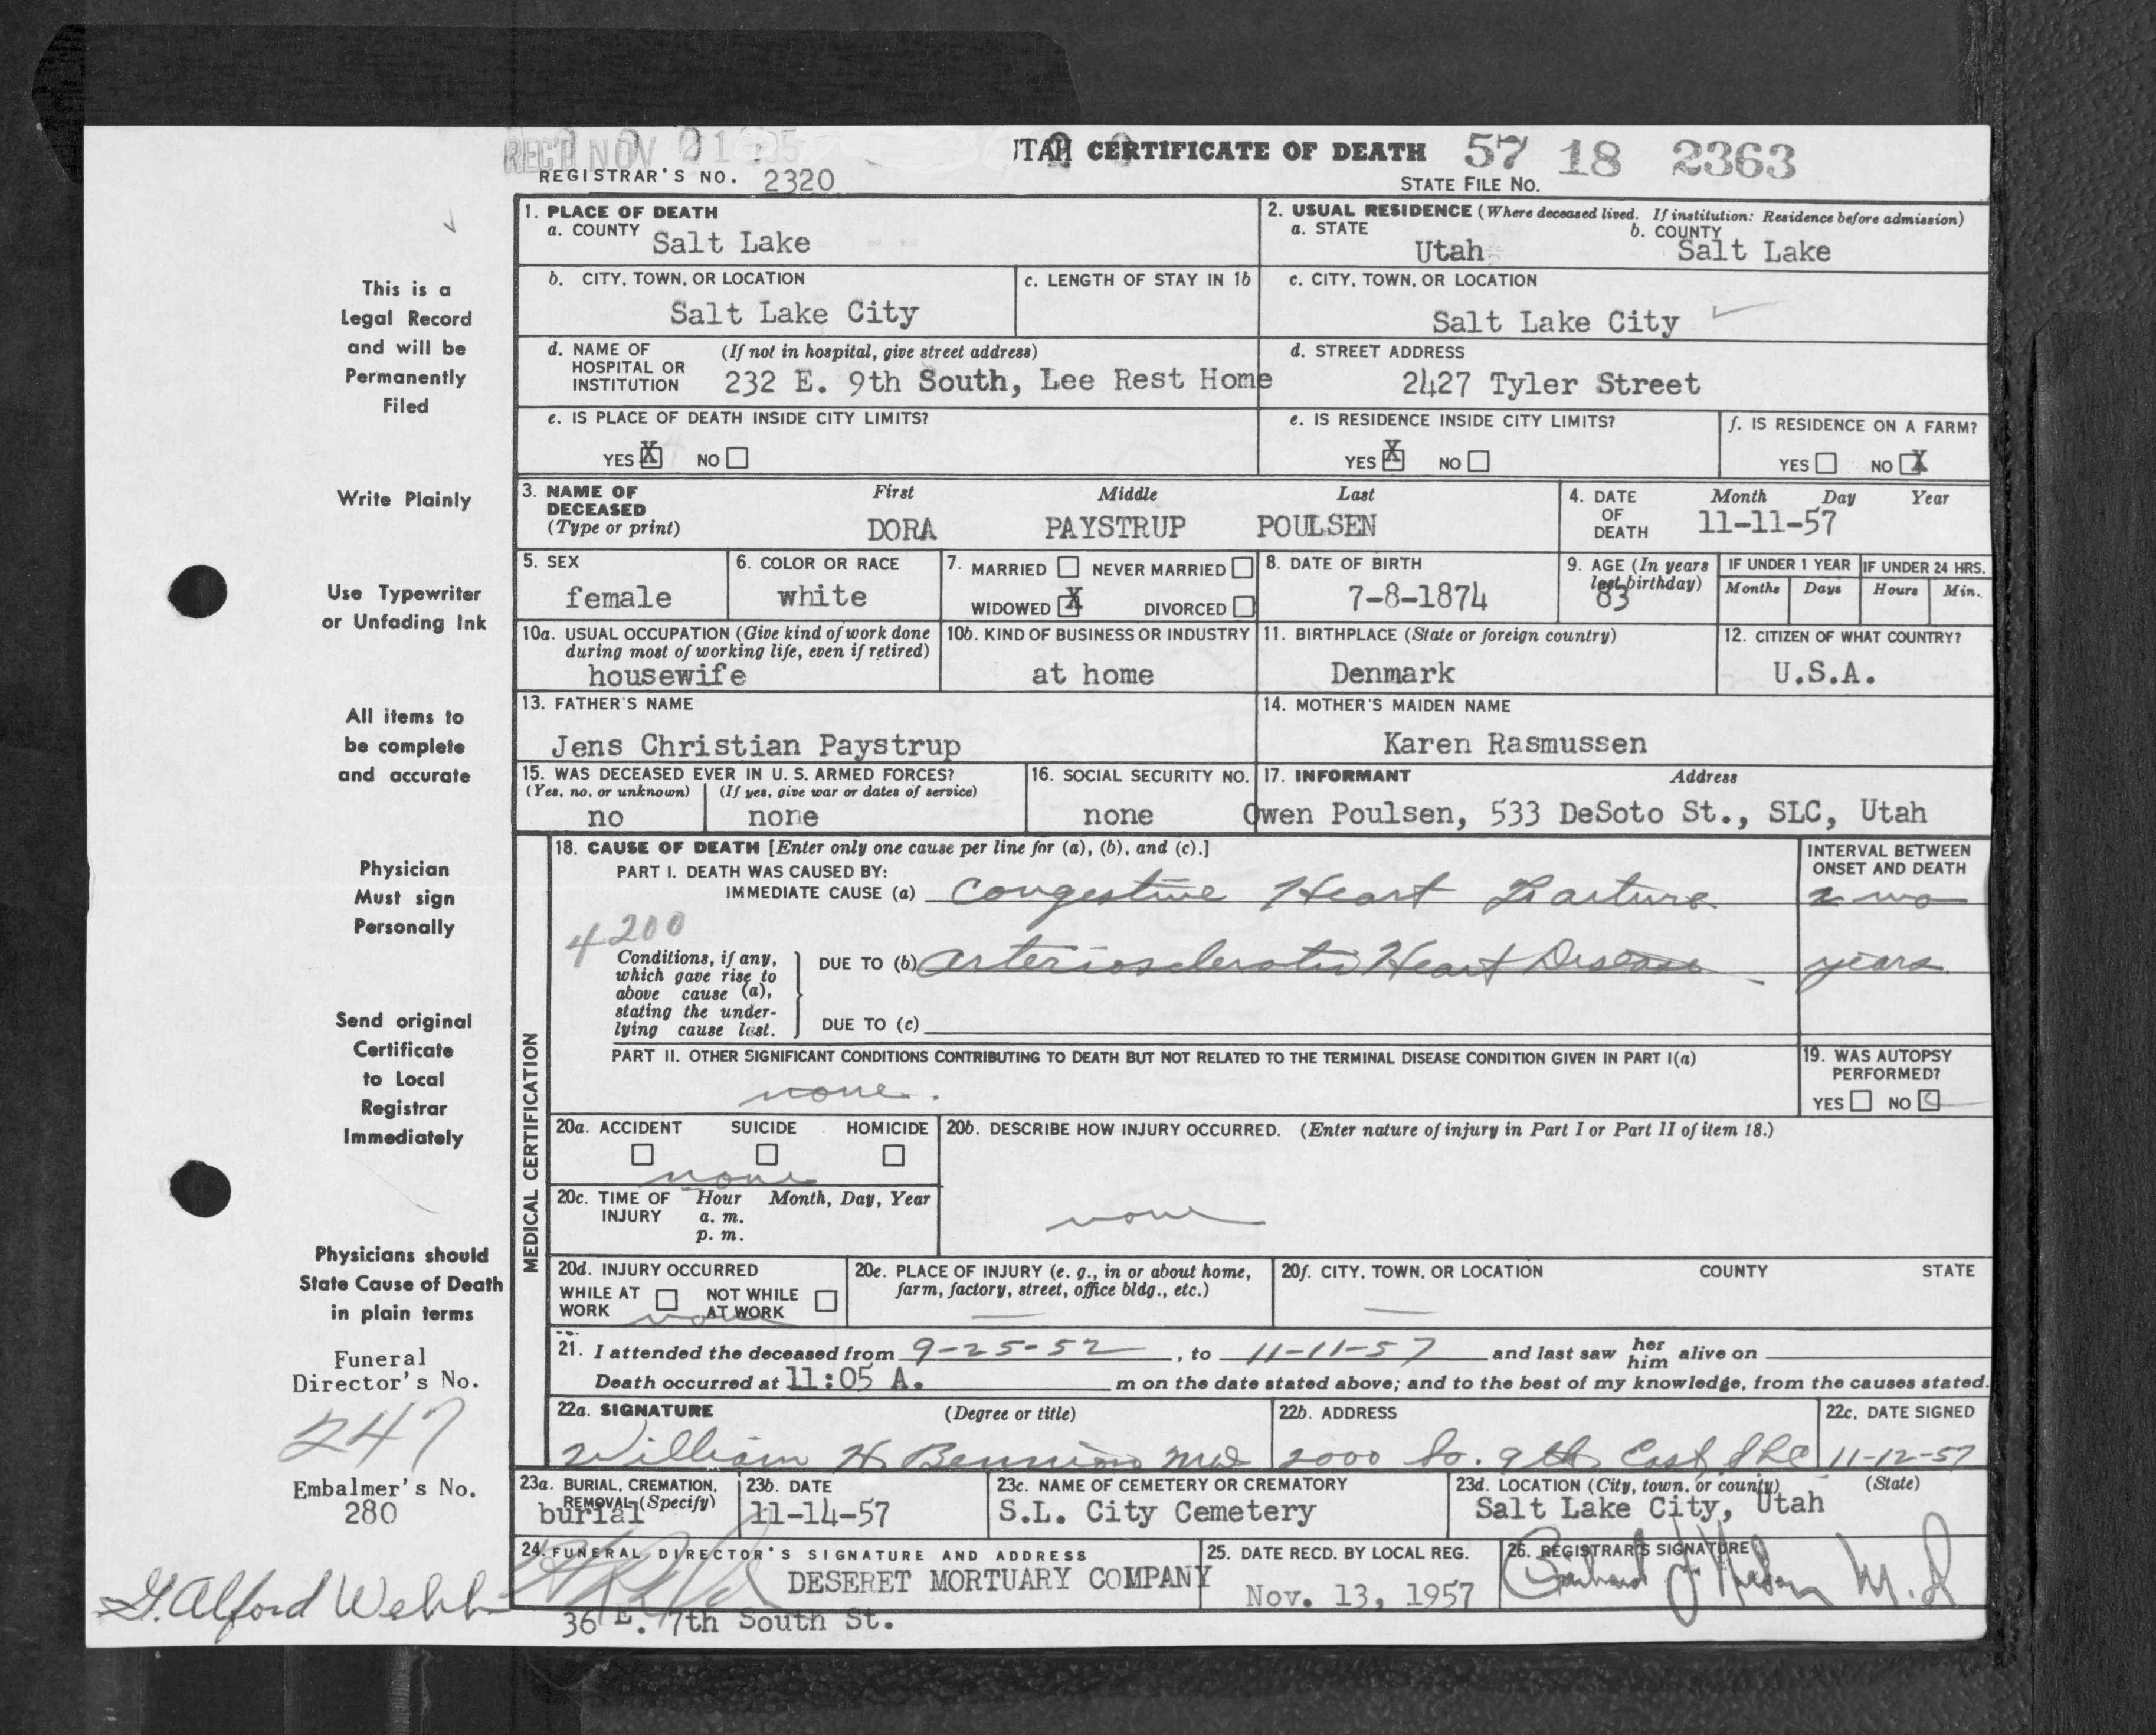 REC'D NOV 21
UTAH CERTIFICATE OF DEATH 57 18 2363
REGISTRAR'S NO. 2320
STATE FILE NO.
This is a
Legal Record
and will be
Permanently
Filed
Write Plainly
Use Typewriter
or Unfading Ink
All items to
be complete
and accurate
Physician
Must sign
Personally
Send original
Certificate
to Local
Registrar
Immediately
Physicians should
State Cause of Death
in plain terms
Funeral
Director's No.
247
Embalmer's No.
280
G. Alford Webb
1. PLACE OF DEATH
a. COUNTY Salt Lake
2. USUAL RESIDENCE (Where deceased lived. If institution: Residence before admission)
a. STATE Utah b. COUNTY Salt Lake
b. CITY, TOWN, OR LOCATION
Salt Lake City
c. LENGTH OF STAY IN 1b
c. CITY, TOWN, OR LOCATION
Salt Lake City
d. NAME OF HOSPITAL OR INSTITUTION (If not in hospital, give street address)
232 E. 9th South, Lee Rest Home
d. STREET ADDRESS
2427 Tyler Street
e. IS PLACE OF DEATH INSIDE CITY LIMITS?
YES X NO
e. IS RESIDENCE INSIDE CITY LIMITS?
YES X NO
f. IS RESIDENCE ON A FARM?
YES NO X
3. NAME OF DECEASED (Type or print)
First Middle Last
DORA PAYSTRUP POULSEN
4. DATE OF DEATH Month Day Year
11-11-57
5. SEX
female
6. COLOR OR RACE
white
7. MARRIED NEVER MARRIED
WIDOWED X DIVORCED
8. DATE OF BIRTH
7-8-1874
9. AGE (In years last birthday)
83
IF UNDER 1 YEAR IF UNDER 24 HRS.
Months Days Hours Min.
10a. USUAL OCCUPATION (Give kind of work done
during most of working life, even if retired)
housewife
10b. KIND OF BUSINESS OR INDUSTRY
at home
11. BIRTHPLACE (State or foreign country)
Denmark
12. CITIZEN OF WHAT COUNTRY?
U.S.A.
13. FATHER'S NAME
Jens Christian Paystrup
14. MOTHER'S MAIDEN NAME
Karen Rasmussen
15. WAS DECEASED EVER IN U. S. ARMED FORCES?
(Yes, no, or unknown) (If yes, give war or dates of service)
no none
16. SOCIAL SECURITY NO.
none
17. INFORMANT Address
Owen Poulsen, 533 DeSoto St., SLC, Utah
MEDICAL CERTIFICATION
18. CAUSE OF DEATH [Enter only one cause per line for (a), (b), and (c).]
INTERVAL BETWEEN
ONSET AND DEATH
PART I. DEATH WAS CAUSED BY:
IMMEDIATE CAUSE (a) Congestive Heart Failure 2 mo
4200
Conditions, if any,
which gave rise to
above cause (a),
stating the under-
lying cause last.
DUE TO (b) arteriosclerotic Heart Disease years
DUE TO (c)
PART II. OTHER SIGNIFICANT CONDITIONS CONTRIBUTING TO DEATH BUT NOT RELATED TO THE TERMINAL DISEASE CONDITION GIVEN IN PART I(a)
none.
19. WAS AUTOPSY
PERFORMED?
YES NO
20a. ACCIDENT SUICIDE HOMICIDE
none
20b. DESCRIBE HOW INJURY OCCURRED. (Enter nature of injury in Part I or Part II of item 18.)
none
20c. TIME OF INJURY Hour Month, Day, Year
a. m.
p. m.
20d. INJURY OCCURRED
WHILE AT WORK NOT WHILE AT WORK
none
20e. PLACE OF INJURY (e. g., in or about home,
farm, factory, street, office bldg., etc.)
—
20f. CITY, TOWN, OR LOCATION COUNTY STATE
—
21. I attended the deceased from 9-25-52, to 11-11-57 and last saw her him alive on
Death occurred at 11:05 A. m on the date stated above; and to the best of my knowledge, from the causes stated.
22a. SIGNATURE (Degree or title)
William H. Bennion MD
22b. ADDRESS
2000 So. 9th East SLC
22c. DATE SIGNED
11-12-57
23a. BURIAL, CREMATION,
REMOVAL (Specify)
burial
23b. DATE
11-14-57
23c. NAME OF CEMETERY OR CREMATORY
S.L. City Cemetery
23d. LOCATION (City, town, or county) (State)
Salt Lake City, Utah
24. FUNERAL DIRECTOR'S SIGNATURE AND ADDRESS
DESERET MORTUARY COMPANY
36 E. 7th South St.
25. DATE RECD. BY LOCAL REG.
Nov. 13, 1957
26. REGISTRAR'S SIGNATURE
M.D